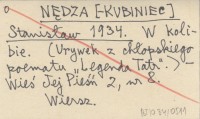 NĘDZA [-KUBINIEC]
Stanisław 1934. W koli-
bie. (Urywek z chłopskiego
poematu „Legenda Tatr".)
Wieś Jej Pieśń 2, nr 8.
Wiersz.